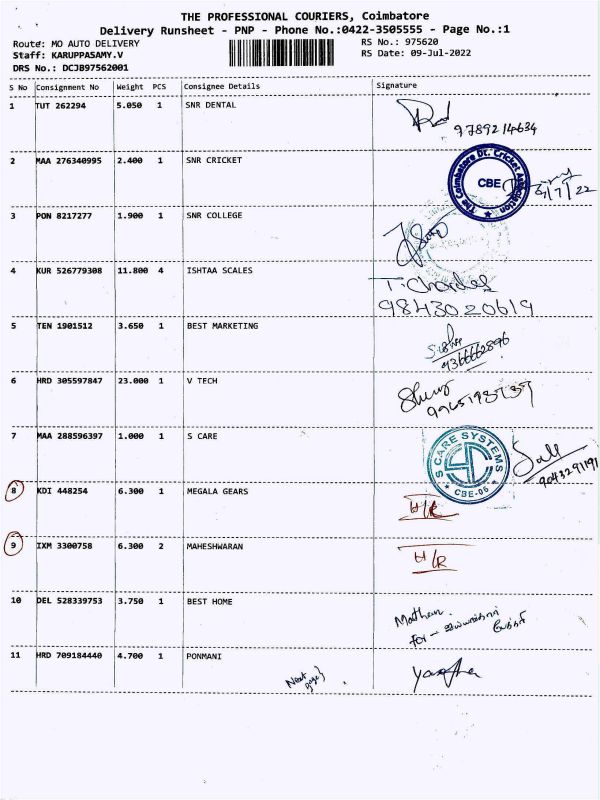 THE PROFESSIONAL COURIERS, Coimbatore
Delivery Runsheet - PNP - Phone No.:0422-3505555 - Page No.:1
Route: MO AUTO DELIVERY
RS No.: 975620
Staff: KARUPPASAMY.V
RS Date: 09-Jul-2022
DRS No.: DCJB97562001
S No Consignment No Weight PCS Consignee Details Signature
1 TUT 262294 5.050 1 SNR DENTAL
9789214634
2 MAA 276340995 2.400 1 SNR CRICKET
The Coimbatore Dt. Cricket Association
CBE
3 PON 8217277 1.900 1 SNR COLLEGE
4 KUR 526779308 11.800 4 ISHTAA SCALES
9843020619
5 TEN 1901512 3.650 1 BEST MARKETING
6 HRD 305597847 23.000 1 V TECH
7 MAA 288596397 1.000 1 S CARE
S CARE SYSTEMS
CBE-06
9043291191
8 KDI 448254 6.300 1 MEGALA GEARS
H/R
9 IXM 3300758 6.300 2 MAHESHWARAN
H/R
10 DEL 528339753 3.750 1 BEST HOME
11 HRD 709184440 4.700 1 PONMANI
Next
page}